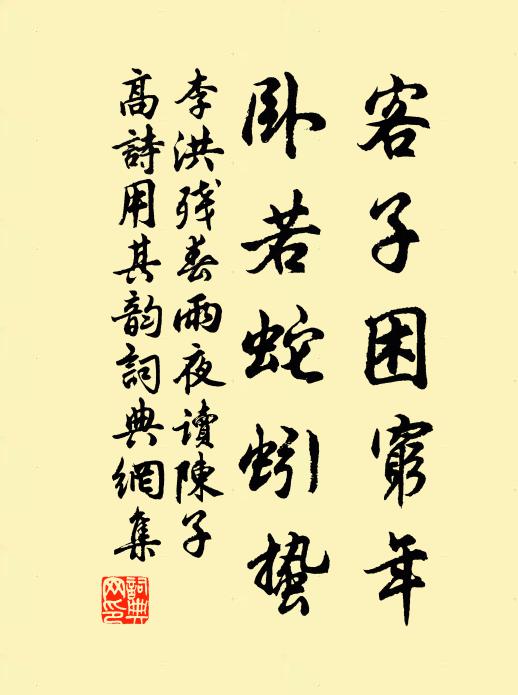 客子困窮年
卧若蛇蚓蟄
李洪殘春雨夜讀陳子
高詩用其韵詞典網集
詞典網印